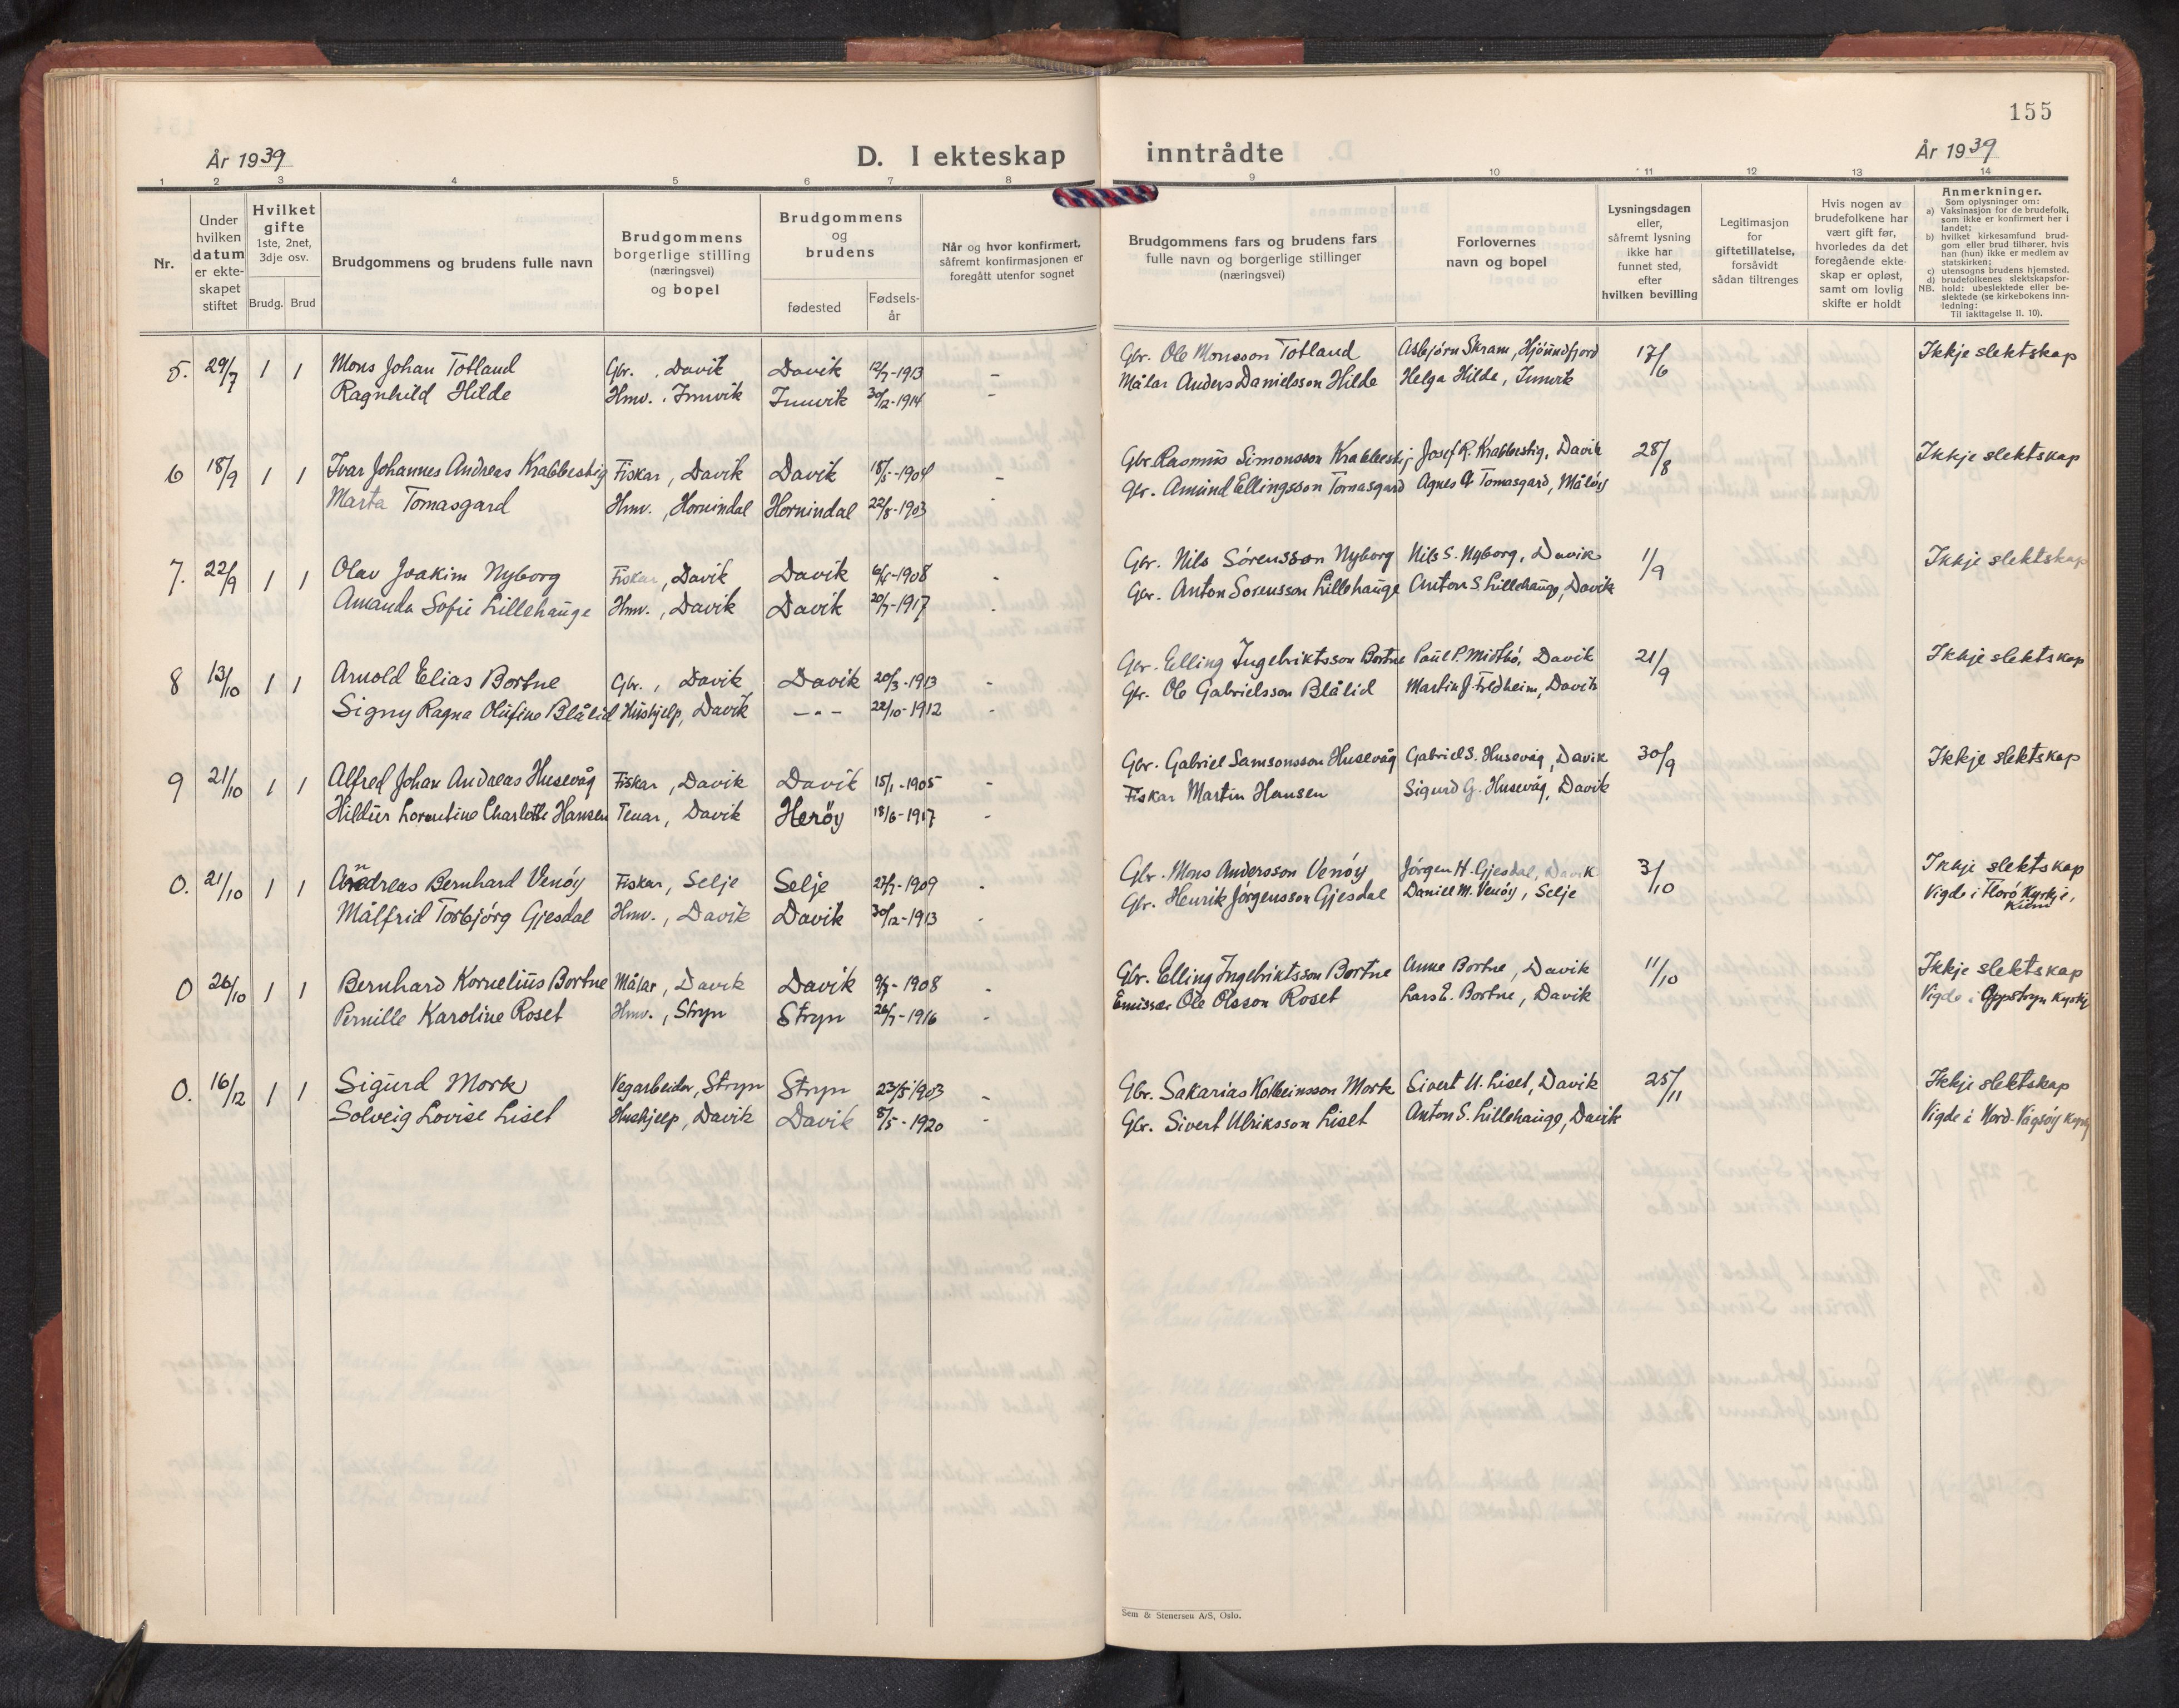 155
År 1939
D. I ekteskap inntrådte
År 1939
1 2 3 4 5 6 7 8 9 10 11 12 13 14
Nr.
Under hvilken datum er ekteskapet stiftet
Hvilket gifte 1ste, 2net, 3dje osv.
Brudg. Brud
Brudgommens og brudens fulle navn
Brudgommens borgerlige stilling (næringsvei) og bopel
Brudgommens og brudens
fødested
Fødselsår
Når og hvor konfirmert, såfremt konfirmasjonen er foregått utenfor sognet
Brudgommens fars og brudens fars fulle navn og borgerlige stillinger (næringsvei)
Forlovernes navn og bopel
Lysningsdagen eller, såfremt lysning ikke har funnet sted, efter hvilken bevilling
Legitimasjon for giftetillatelse, forsåvidt sådan tiltrenges
Hvis nogen av brudefolkene har vært gift før, hvorledes da det foregående ekteskap er opløst, samt om lovlig skifte er holdt
Anmerkninger.
Som oplysninger om:
a) Vaksinasjon for de brudefolk, som ikke er konfirmert her i landet;
b) hvilket kirkesamfund brudgom eller brud tilhører, hvis han (hun) ikke er medlem av statskirken;
c) utensogns brudens hjemsted.
d) brudefolkenes slektskapsforhold: ubeslektede eller beslektede (se kirkebokens innledning:
NB.
Til iakttagelse II. 10).
5. 29/7 1 1 Mons Johan Totland Gbr. , Davik Davik 12/7-1913 - Gbr. Ole Monsson Totland Asbjørn Skram, Hjørundfjord 17/6 Ikkje slektskap
Ragnhild Hilde Hmv. , Innvik Innvik 30/12-1914 - Målar Anders Danielsson Hilde Helga Hilde, Innvik
6 18/9 1 1 Ivar Johannes Andreas Krabbestig Fiskar, Davik Davik 18/5-1904 - Gbr. Rasmus Simonsson Krabbestig Josef R. Krabbestig, Davik 28/8 Ikkje slektskap
Marta Tomasgard Hmv. , Hornindal Hornindal 22/8-1903 - Gbr. Amund Ellingsson Tomasgard Agnes A Tomasgard, Måløy
7. 22/9 1 1 Olav Joakim Nyborg Fiskar, Davik Davik 6/5-1908 - Gbr. Nils Sørensson Nyborg Nils S. Nyborg, Davik 1/9 Ikkje slektskap
Amanda Sofie Lillehauge Hmv. , Davik Davik 20/7-1917 - Gbr. Anton Sørensson Lillehauge Anton S. Lillehauge, Davik
8 13/10 1 1 Arnold Elias Bortne Gbr. , Davik Davik 20/3-1913 - Gbr. Elling Ingebriktsson Bortne Paul P. Midtbø, Davik 21/9 Ikkje slektskap
Signy Ragna Olufine Blålid Hushjelp, Davik -"- 22/10-1912 - Gbr. Ole Gabrielsson Blålid Martin J. Feldheim, Davik
9 21/10 1 1 Alfred Johan Andreas Husevåg Fiskar, Davik Davik 15/1-1905 - Gbr. Gabriel Samsonsson Husevåg Gabriel S. Husevåg, Davik 30/9 Ikkje slektskap
Hildur Lorentine Charlotte Hansen Tenar, Davik Herøy 18/6-1917 - Fiskar Martin Hansen Sigurd G. Husevåg, Davik
0. 21/10 1 1 Andreas Bernhard Venøy Fiskar, Selje Selje 27/7-1909 - Gbr. Mons Andersson Venøy Jørgen H. Gjesdal, Davik 3/10 Ikkje slektskap
Målfrid Torbjørg Gjesdal Hmv. , Davik Davik 30/12-1913 - Gbr. Henrik Jørgensson Gjesdal Daniel M. Venøy, Selje Vigde i Florø Kyrkje, Kinn
0 26/10 1 1 Bernhard Kornelius Bortne Målar, Davik Davik 9/3-1908 - Gbr. Elling Ingebriktsson Bortne Anne Bortne, Davik 11/10 Ikkje slektskap
Pernille Karoline Roset Hmv. , Stryn Stryn 26/7-1916 - Emissær Ole Olsson Roset Lars E. Bortne, Davik Vigde i Oppstryn Kyrkje
0. 16/12 1 1 Sigurd Mork Vegarbeider, Stryn Stryn 23/5 1903 - Gbr. Sakarias Kolbeinsson Mork Sivert U. Liset, Davik 25/11 Ikkje slektskap
Solveig Lovise Liset Hushjelp, Davik Davik 8/5-1920 - Gbr. Sivert Ulriksson Liset Anton S. Lillehauge, Davik Vigde i Nord-Vågsøy Kyrkj
Sem & Stenersen A/S, Oslo.